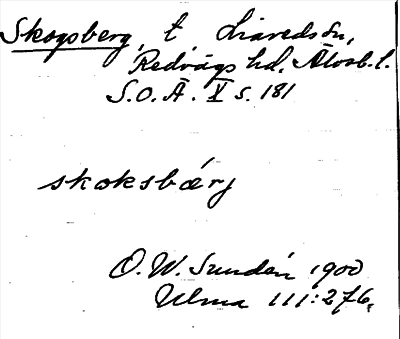 Skogsberg, t Liaredson,
Redvägs hd. Älvsb. l.
S.O.Ä. X s. 181
skoksbærj
O. W. Sundén 1900
Ulma 111:276.